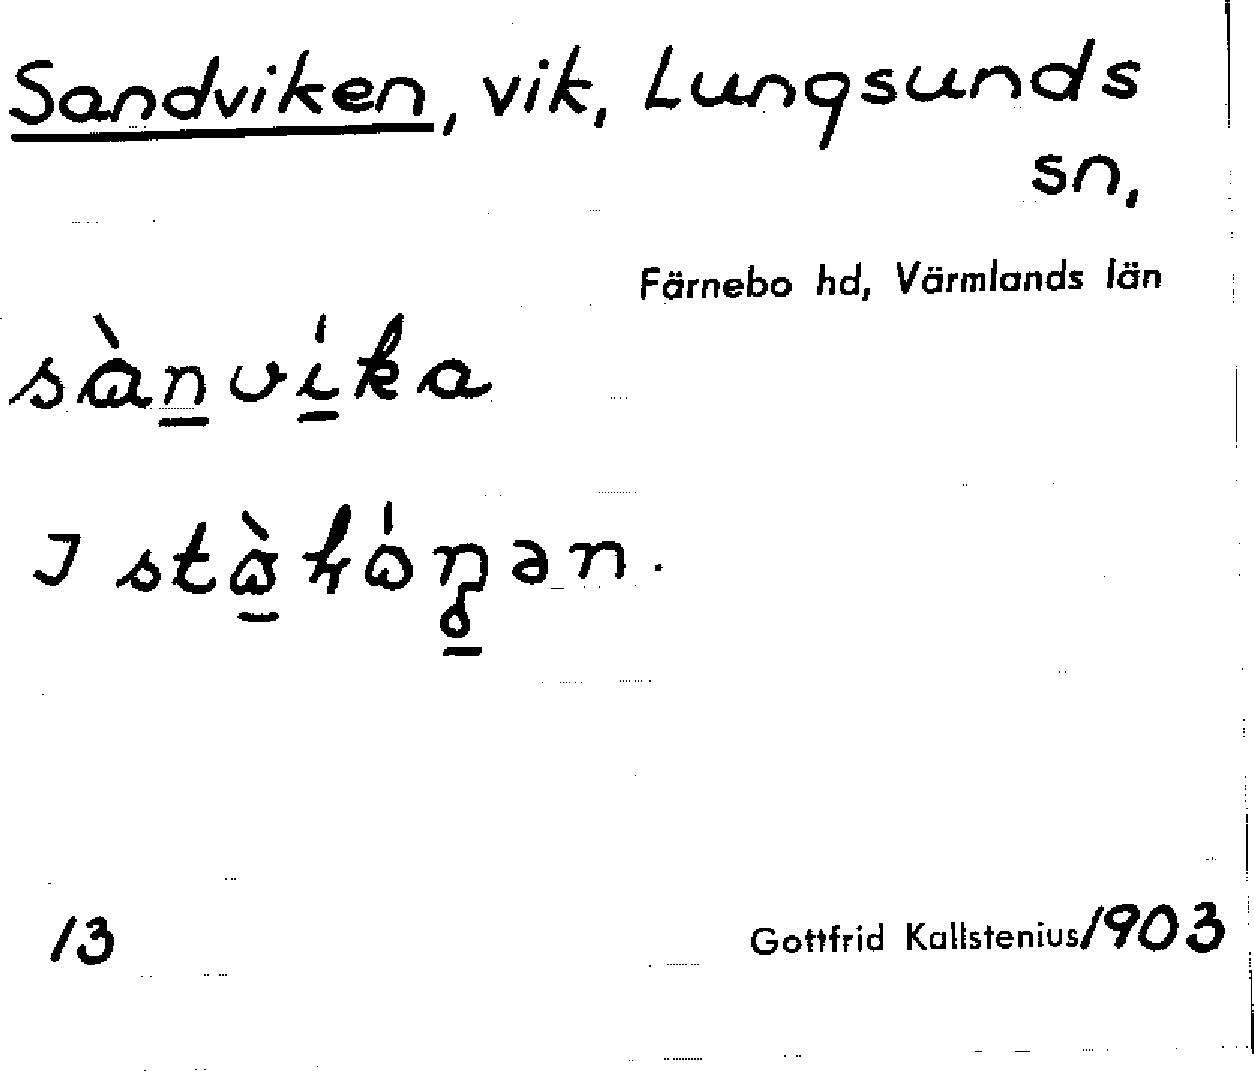 Sandviken, vik, Lungsunds
sn,
Färnebo hd, Värmlands län
sànvíka
I
13
Gottfrid Kallstenius 1903